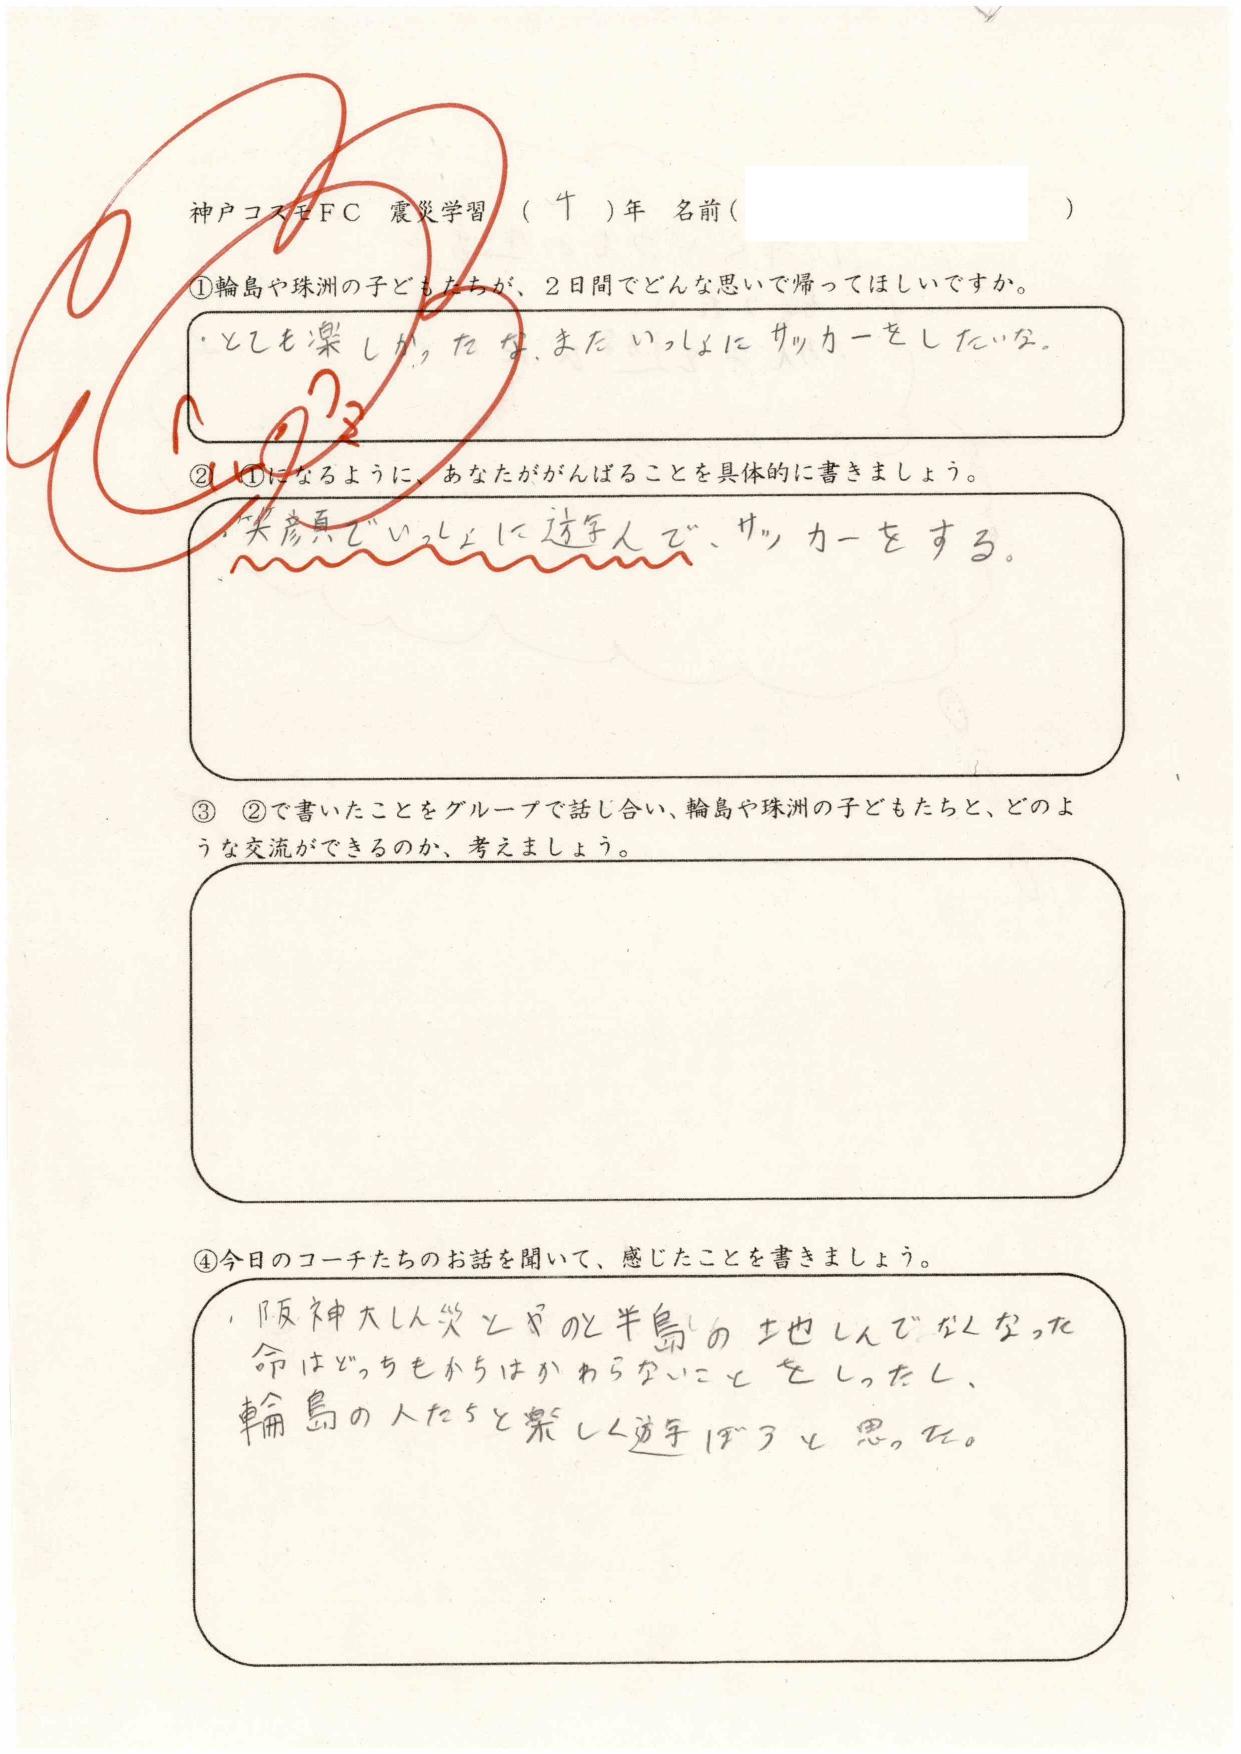 神戸コスモFC 震災学習 ( 4 )年 名前( )
①輪島や珠洲の子どもたちが、2日間でどんな思いで帰ってほしいですか。
・とても楽しかったな、またいっしょにサッカーをしたいな。
② ①になるように、あなたががんばることを具体的に書きましょう。
・笑顔でいっしょに遊んで、サッカーをする。
③ ②で書いたことをグループで話し合い、輪島や珠洲の子どもたちと、どのよ
うな交流ができるのか、考えましょう。
④今日のコーチたちのお話を聞いて、感じたことを書きましょう。
・阪神大しん災とやのと半島の地しんでなくなった
命はどっちもかちはかわらないことをしったし、
輪島の人たちと楽しく遊ぼうと思った。